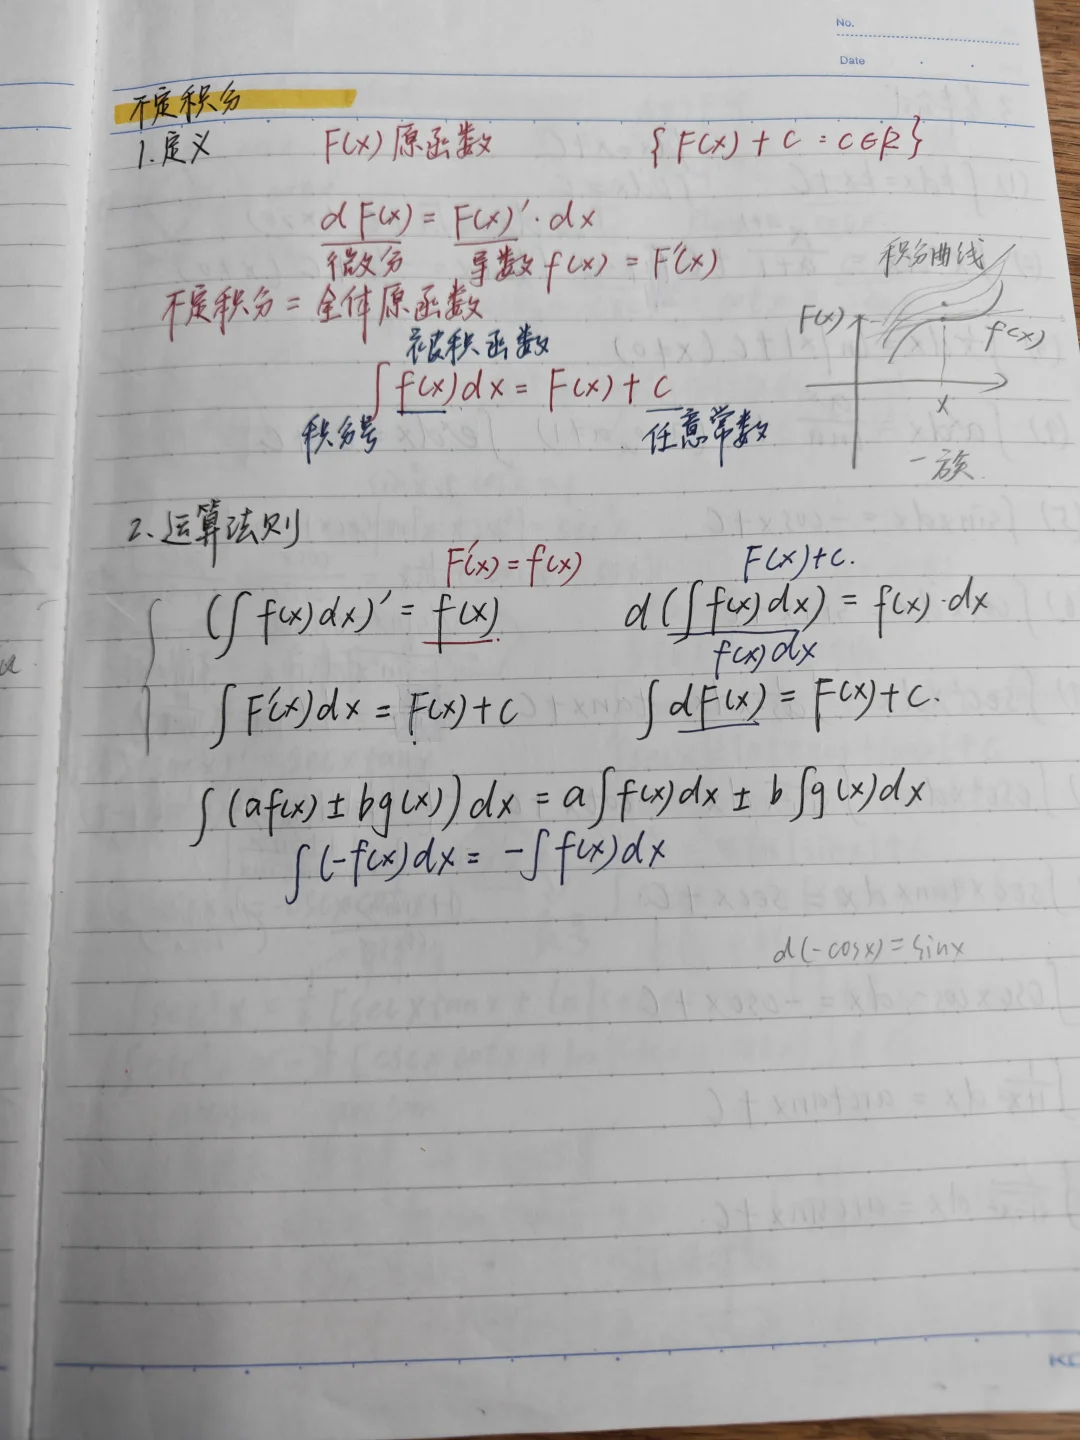 No.
Date
不定积分
1.定义 F(x)原函数 {F(x)+C:C∈R}
dF(x)=F(x)'·dx
微分 导数f(x)=F'(x)
积分曲线
不定积分=全体原函数
F(x) f(x)
被积函数
∫f(x)dx=F(x)+C
x
积分号 任意常数
一族
2、运算法则
F'(x)=f(x) F(x)+C.
(∫f(x)dx)'=f(x) d(∫f(x)dx)=f(x)·dx
f(x)dx
∫F'(x)dx=F(x)+C ∫dF(x)=F(x)+C.
∫(af(x)±bg(x))dx=a∫f(x)dx±b∫g(x)dx
∫(-f(x)dx=-∫f(x)dx
d(-cosx)=sinx